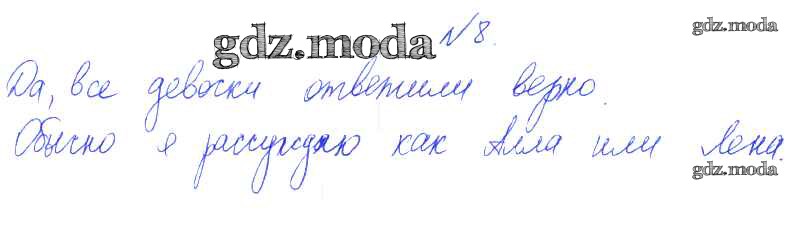 gdz.moda
gdz.moda №8.
Да, все девочки ответили верно.
Обычно я рассуждаю как Алла или Лена.
gdz.moda